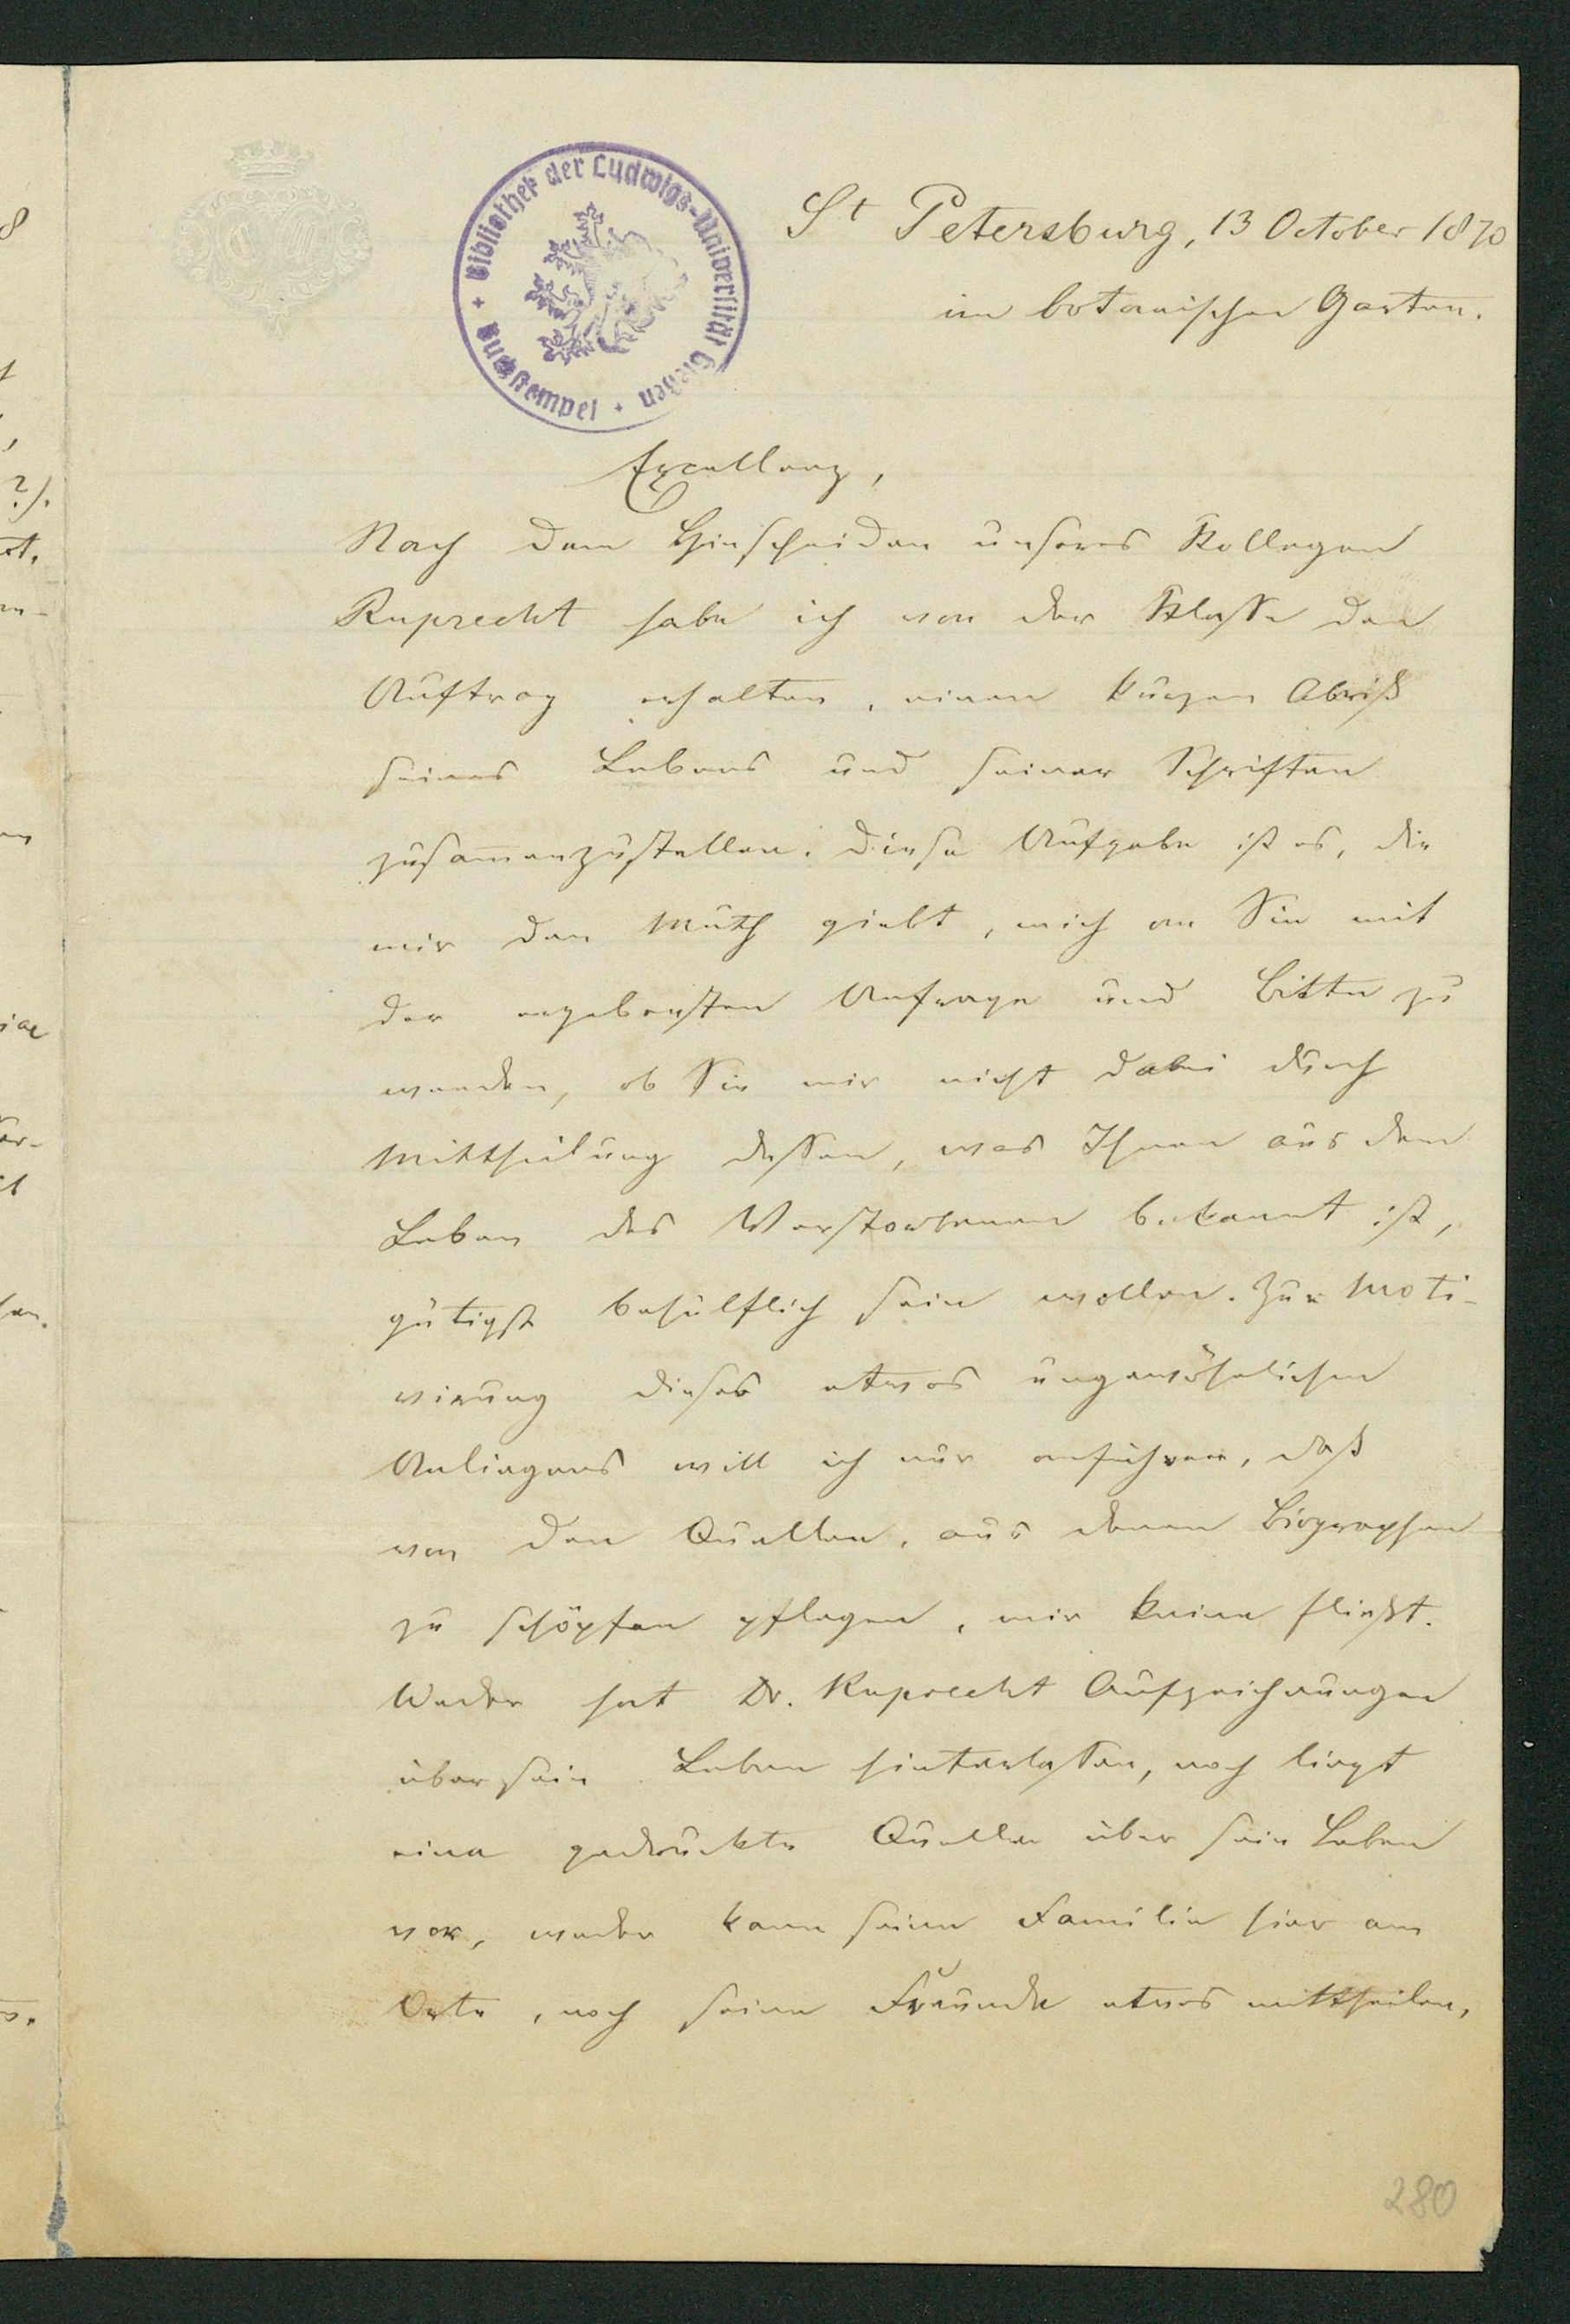 Bibliothek der Ludwigs-Universität Gießen + Buchstempel +
St Petersburg, 13 October 1870
im botanischen Garten.
Excellenz,
Nach dem Hinscheiden unseres Kollegen
Ruprecht habe ich von der Klasse den
Auftrag erhalten, einen kurzen Abriß
seines Lebens und seiner Schriften
zusammenzustellen. Diese Aufgabe ist es, die
mir den Muth giebt, mich an Sie mit
der ergebensten Anfrage und Bitte zu
wenden, ob Sie mir nicht dabei durch
Mittheilung dessen, was Ihnen aus dem
Leben des Verstorbenen bekannt ist,
gütigst behülflich sein wollen. Zur Moti-
virung dieses etwas ungewöhnlichen
Anliegens will ich nur anführen, daß
von den Quellen, aus denen Biographen
zu schöpfen pflegen, mir keine fließt.
Weder hat Dr. Ruprecht Aufzeichnungen
über sein Leben hinterlassen, noch liegt
eine gedruckte Quelle über sein Leben
vor, weder kann seine Familie hier am
Orte, noch seine Freunde etwas mittheilen,
280